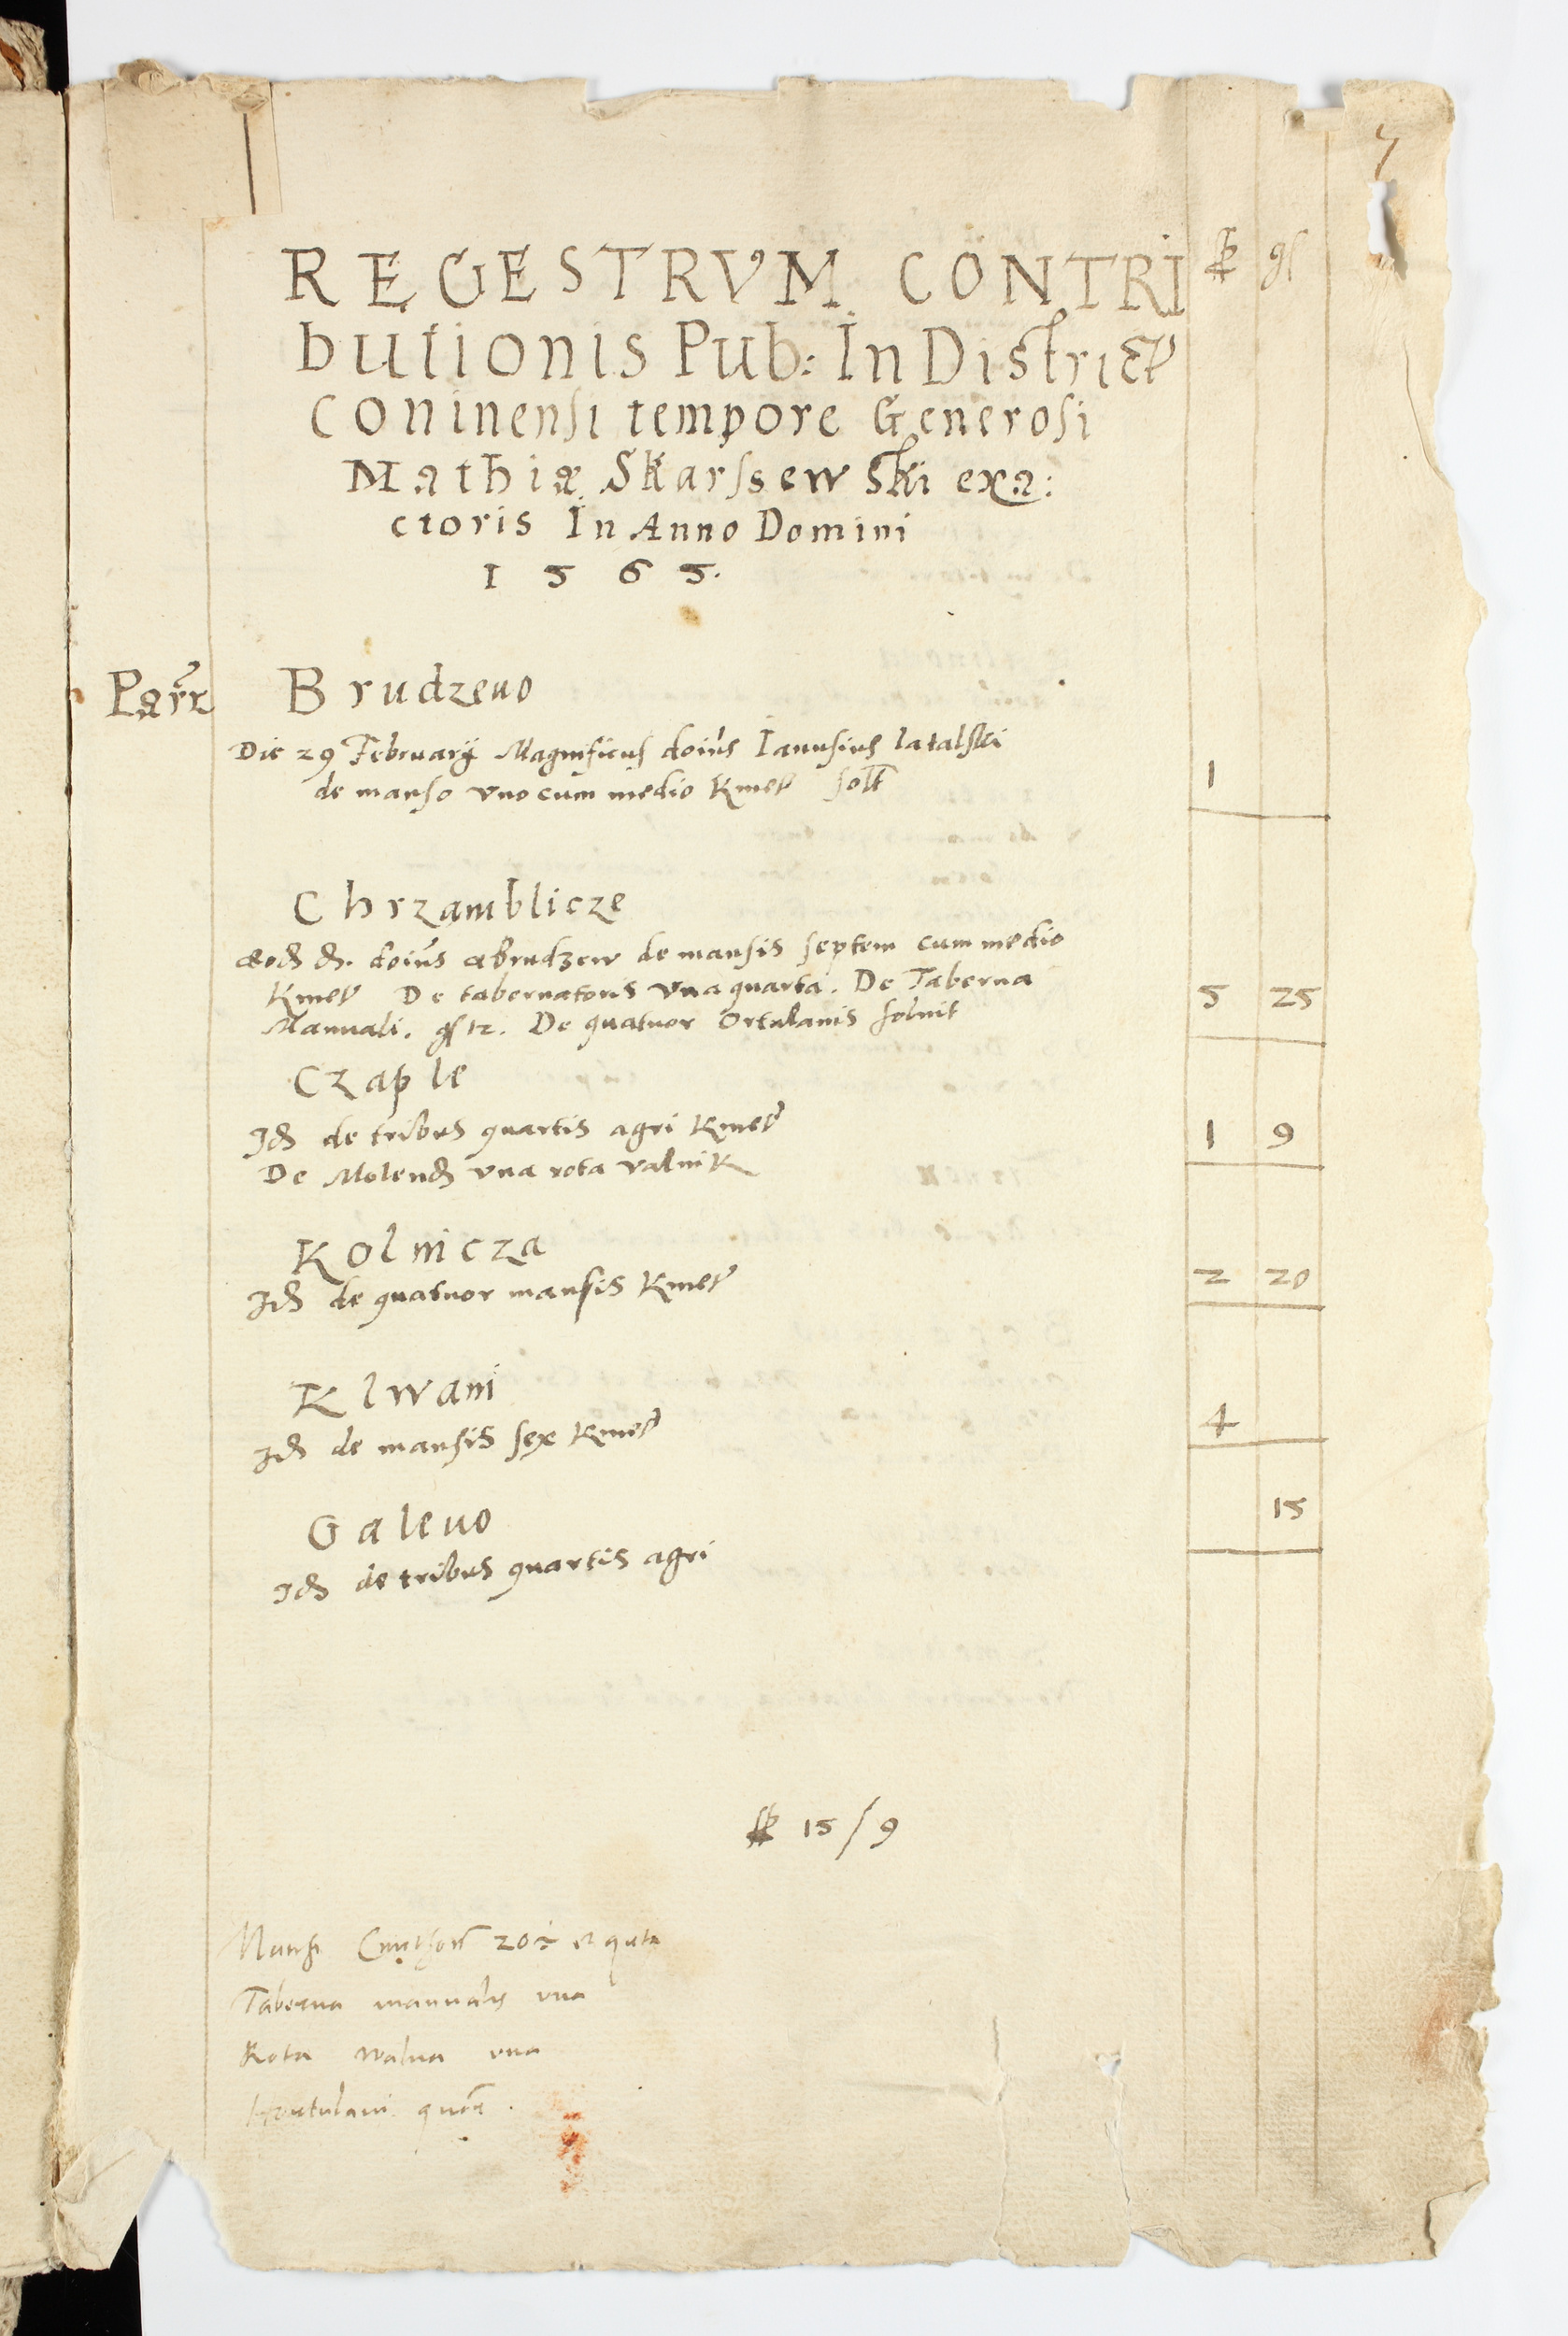 7
REGESTRVM CONTRI
butionis Pub: In District
Coninensi tempore Generosi
Mathiæ Skarssewski exa:
ctoris In Anno Domini
1565.
Parr Brudzeuo
Die 29 February Magnificus doius Ianusius latalski
de manso vno cum medio Kmet solt 1
Chrzamblicze
eod d. doius a brudzew de mansis septem cum medio
Kmet De tabernatoris vna quarta. De Taberna 5 25
Manuali. gs 12. De quatuor Ortulanis soluit
Czaple
Id de tribus quartis agri Kmet 1 9
De Molend vna rota valnik
Kolnicza
Id de quatuor mansis Kmet 2 20
Klwani
Id de mansis sex Kmet 4
Galeuo 15
Id de tribus quartis agri
15/9
Mansi 20 et
Taberna manualis vna
Rota walna vna
Hortulani